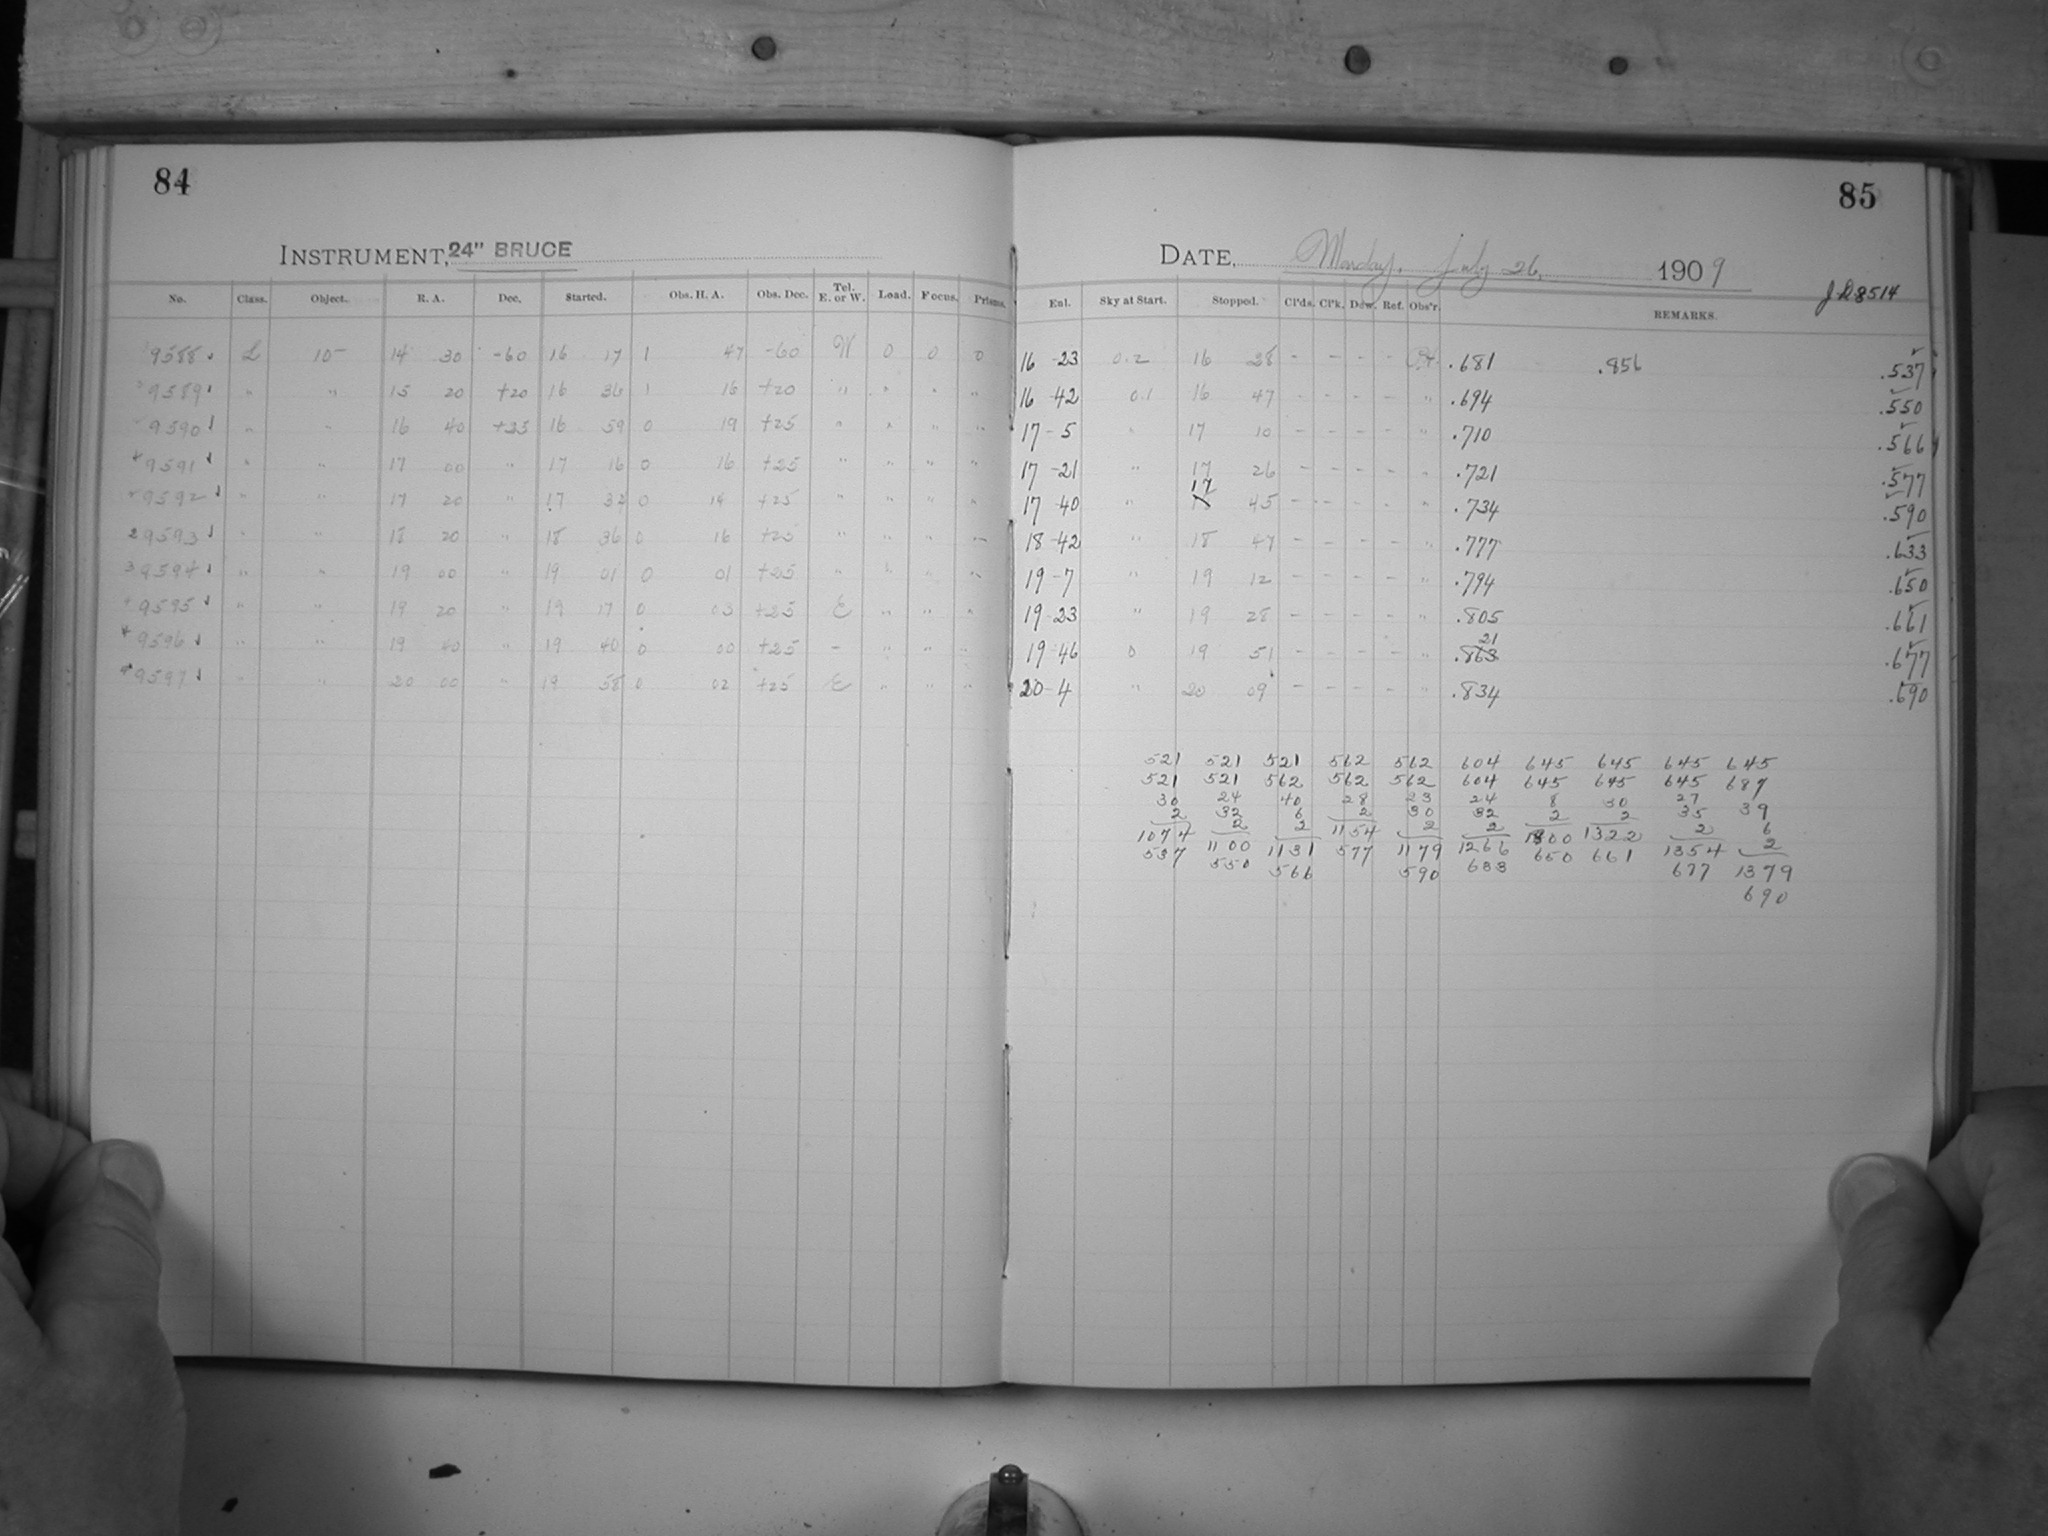 84
INSTRUMENT, 24" BRUCE
No. Class. Object. R. A. Dec. Started. Obs. H. A. Obs. Dec. Tel. E. or W. Load. Focus. Prisms.
9588 L 10- 14 30 -60 16 17 1 47 -60 W 0 0 0
9589 " " 15 20 +20 16 36 1 16 +20 " " " "
9590 " " 16 40 +25 16 59 0 19 +25 " " " "
9591 " " 17 00 " 17 16 0 16 +25 " " " "
9592 " " 17 20 " 17 32 0 14 +25 " " " "
9593 " " 18 20 " 18 36 0 16 +25 " " " "
9594 " " 19 00 " 19 01 0 01 +25 " " " "
9595 " " 19 20 " 19 17 0 03 +25 E " " "
9596 " " 19 40 " 19 40 0 00 +25 - " " "
9597 " " 20 00 " 19 58 0 02 +25 E " " "
85
DATE, Monday, July 26, 1909
JD 8514
Enl. Sky at Start. Stopped. Cl'ds. Cl'k. Dew. Ref. Obs'r. REMARKS.
16-23 0.2 16 28 - - - - .681 .856 .537
16-42 0.1 16 47 - - - - " .694 .550
17-5 " 17 10 - - - - " .710 .566
17-21 " 17 26 - - - - " .721 .577
17-40 " 17 45 - - - - " .734 .590
18-42 " 18 47 - - - - " .777 .633
19-7 " 19 12 - - - - " .794 .650
19-23 " 19 28 - - - - " .805 .661
21
19-46 0 19 51 - - - - " .863 .677
20-4 " 20 09 - - - - " .834 .690
521 521 521 562 562 604 645 645 645 645
521 521 562 562 562 604 645 645 645 687
30 24 40 28 23 24 8 30 27 39
2 32 6 2 30 32 2 2 35 6
1074 2 2 1154 2 2 1300 1322 2 2
537 1100 1131 577 1179 1266 650 661 1354 1379
550 566 590 633 677 690